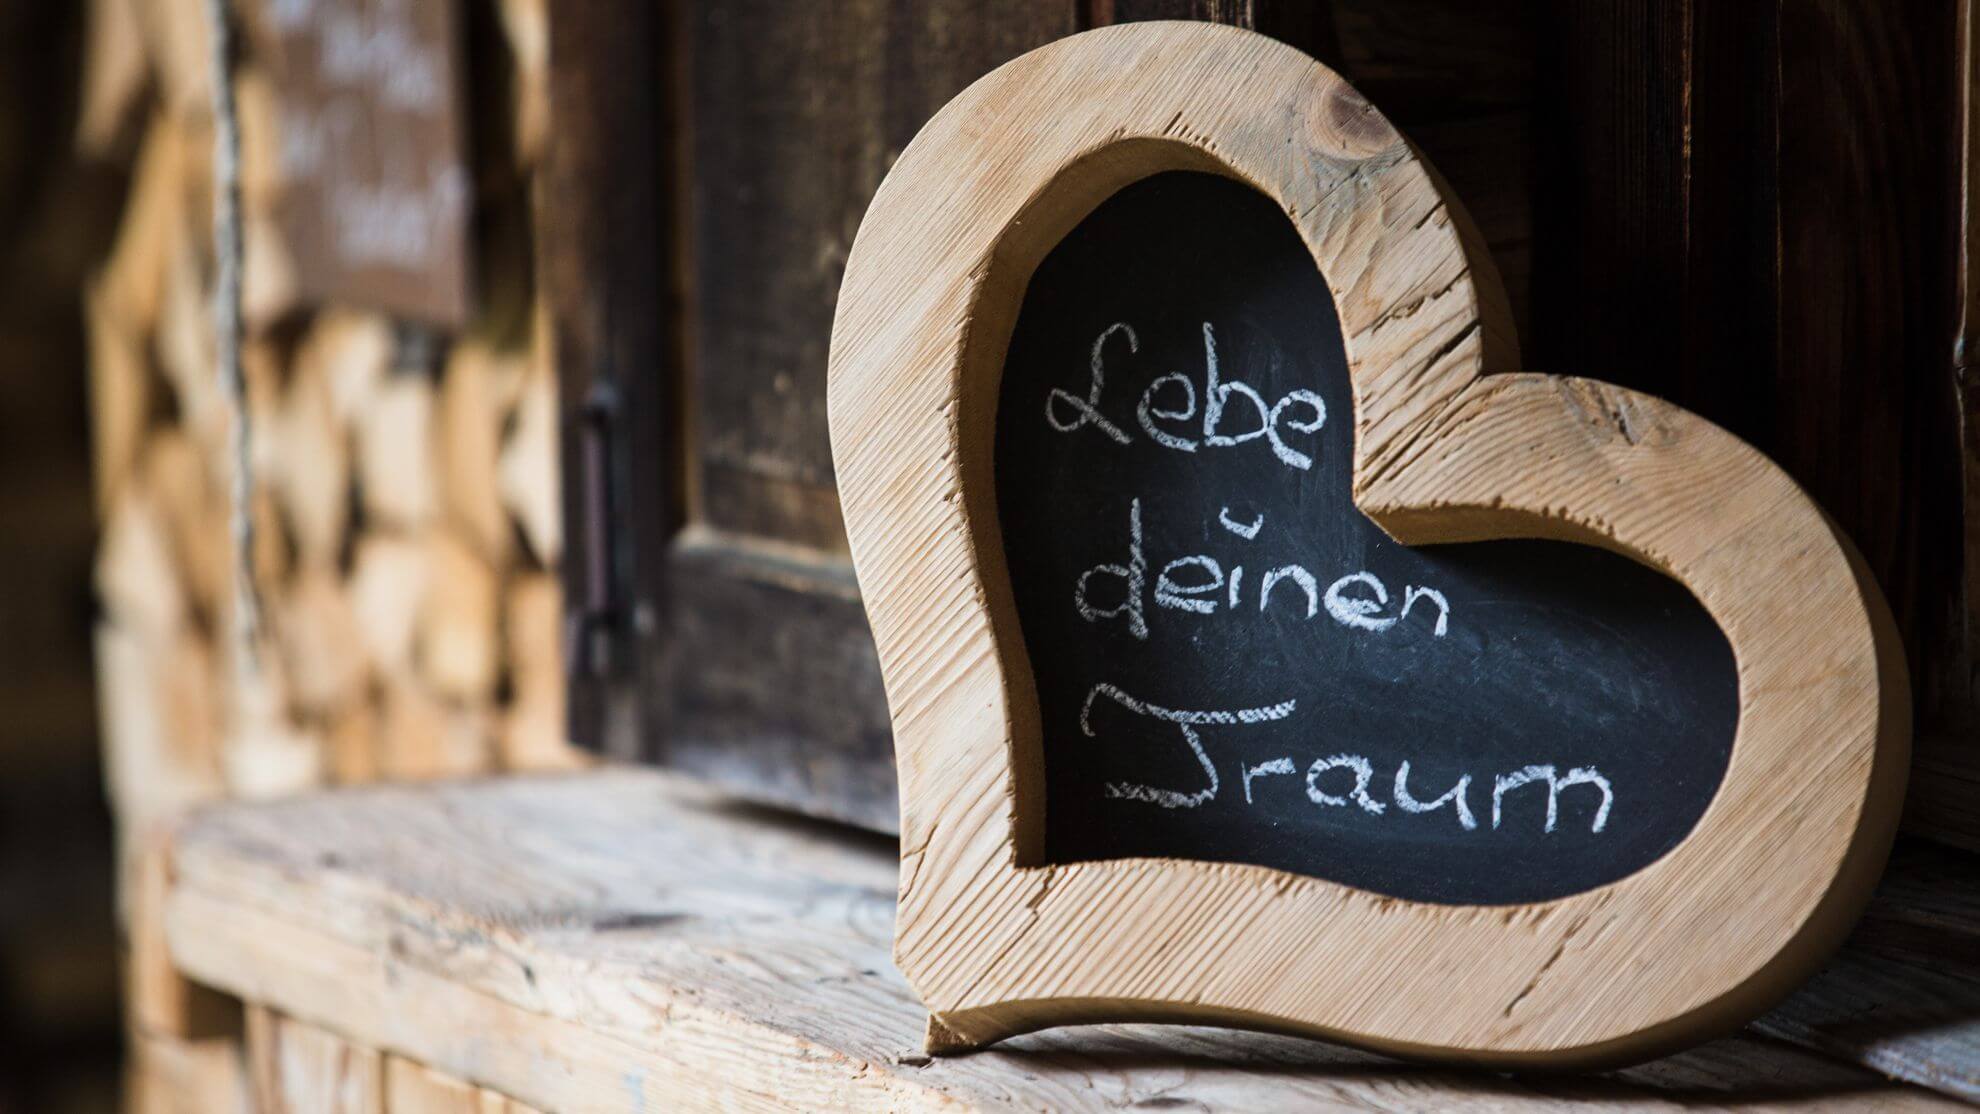 Lebe
deinen
Traum